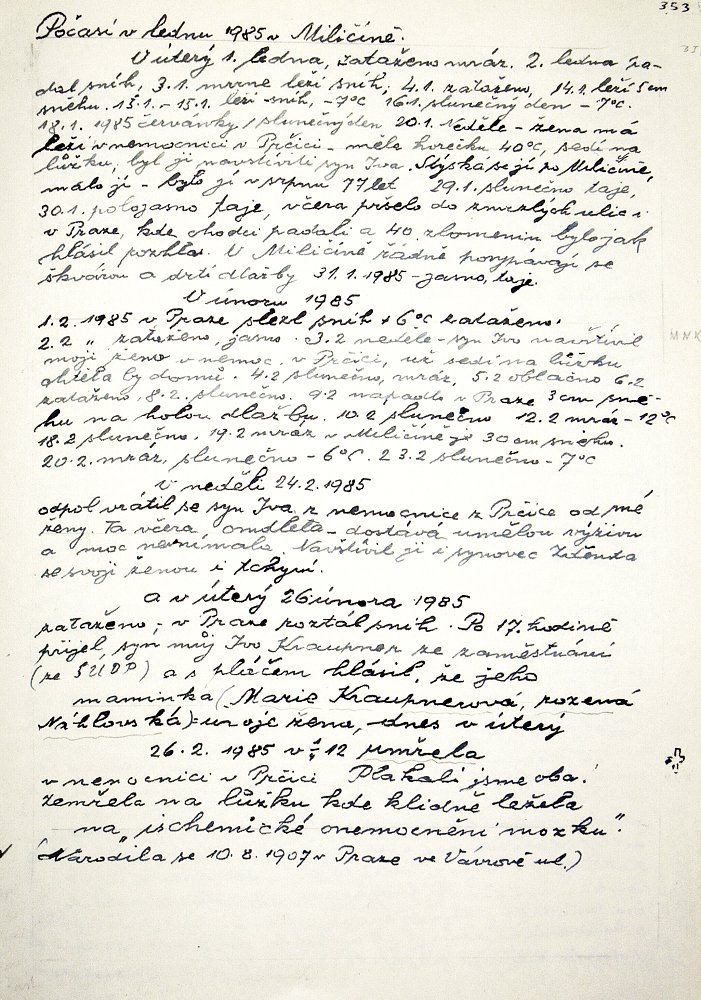 353
Počasí v lednu 1985 v Miličíně.
V úterý 1. ledna, zataženo mráz. 2. ledna pa-
dal sníh, 3.1. mrzne leží sníh, 4.1. zataženo, 14.1. leží 5 cm
sněhu. 13.1. - 15.1. leží sníh, -7°C 16.1. slunečný den - 7°C.
18.1. 1985 červánky / slunečný den 20.1. Neděle - žena má
leží v nemocnici v Prčici - měla horečku 40°C, sedí na
lůžku, byl ji navštíviti syn Ivo. Stýská se jí po Miličíně,
málo jí - bylo jí v srpnu 77 let 29.1. slunečno taje,
30.1. polojasno taje, včera pršelo do zmrzlých ulic i
v Praze, kde chodci padali a 40 zlomenin bylo jak
hlásil rozhlas. V Miličíně řádně posypávají se
škvárou a drtí dlažby 31.1. 1985 - jasno, taje.
V únoru 1985
1.2. 1985 v Praze slezl sníh + 6°C zataženo.
2.2 „ zataženo, jasno. 3.2 neděle - syn Ivo navštívil
moji ženu v nemoc. v Prčici, už sedí na lůžku
chtěla by domů. 4.2 slunečno, mráz, 5.2 oblačno 6.2
zataženo, 8.2. slunečno. 9.2 napadlo v Praze 3 cm sně-
hu na holou dlažbu. 10.2 slunečno 12.2 mráz - 12°C
18.2 slunečno. 19.2 mráz v Miličíně je 30 cm sněhu.
20.2. mráz, slunečno - 6°C. 23.2 slunečno - 7°C
V neděli 24.2. 1985
odpol vrátil se syn Iva z nemocnice z Prčice od mé
ženy. Ta včera omdlela - dostává umělou výživu
a moc nevnímala. Navštívil ji i synovec Zdenda
se svojí ženou i tchyní.
a v úterý 26 února 1985
zataženo, - v Praze roztál sníh. Po 17. hodině
přijel syn můj Ivo Kraupner ze zaměstnání
(ze SÚDP) a s pláčem hlásil, že jeho
maminka (Marie Kraupnerová, rozená
Náhlovská) = moje žena, dnes v úterý
26.2. 1985 v 12 umřela
v nemocnici v Prčici Plakali jsme oba!
Zemřela na lůžku kde klidně ležela
na „ischemické onemocnění mozku".
(Narodila se 10.8. 1907 v Praze ve Vávrově ul.)